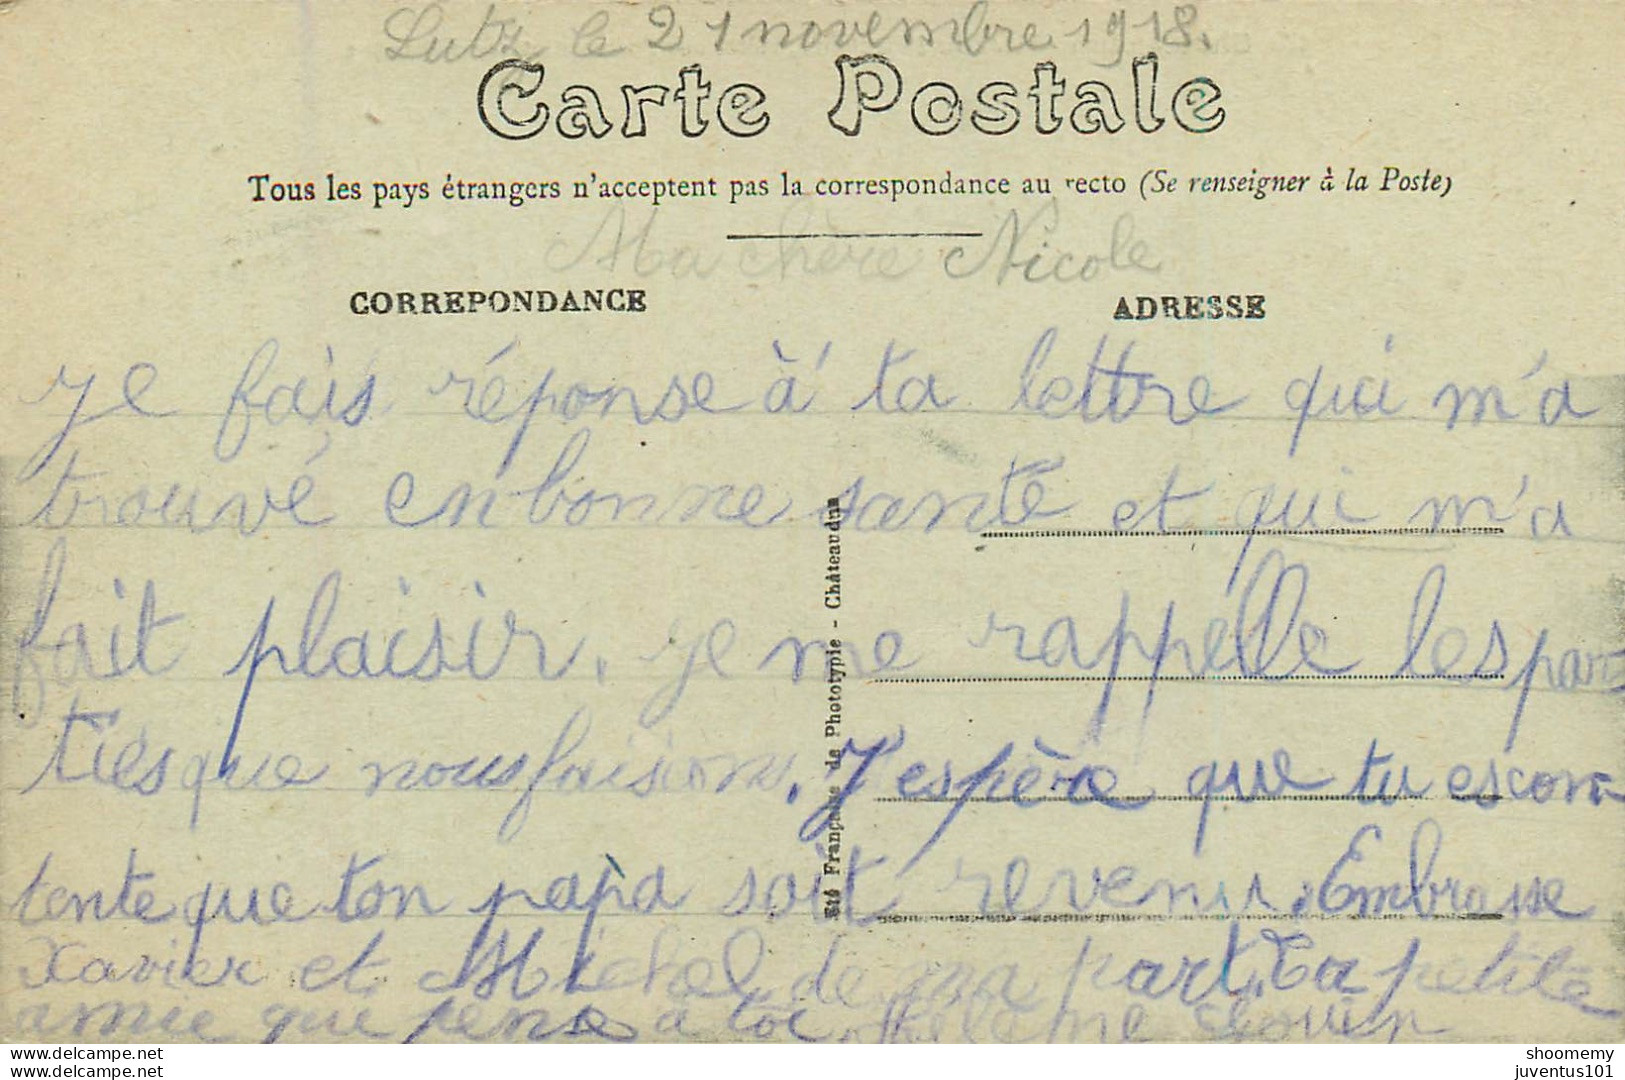 Lutz, le 21 novembre 1918.
Carte Postale
Tous les pays étrangers n'acceptent pas la correspondance au recto (Se renseigner à la Poste)
Ma chère Nicole
CORREPONDANCE
ADRESSE
Je fais réponse à ta lettre qui m'a
trouvé en bonne santé et qui m'a
fait plaisir. Je me rappelle les par-
ties que nous faisions. J'espère que tu es con-
tente que ton papa soit revenu. Embrasse
Xavier et Michel de ma part. Ta petite
amie qui pense à toi
Sté Française de Phototypie - Châteaudun
www.delcampe.net
www.delcampe.net
shoomemy
juventus101